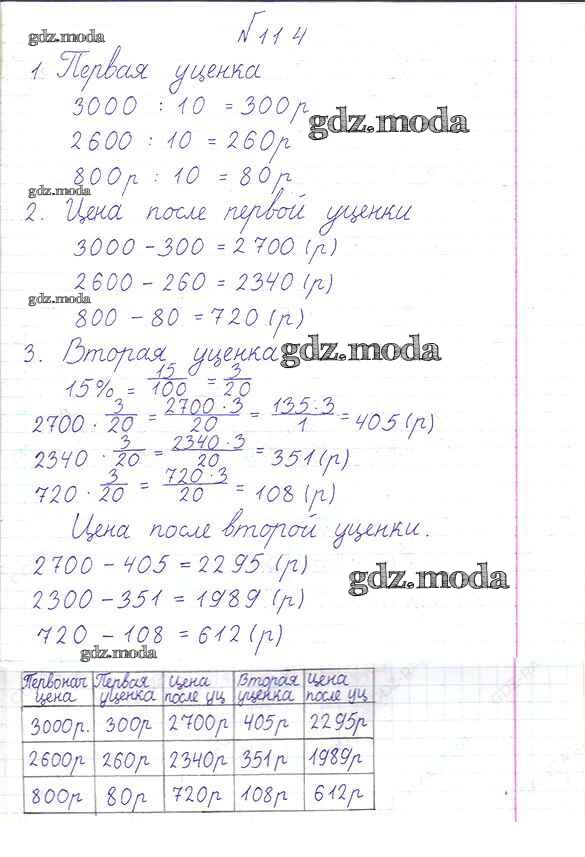 gdz.moda
№ 114
1. Первая уценка
3000 : 10 = 300р
gdz.moda
2600 : 10 = 260р
800р : 10 = 80р
gdz.moda
2. Цена после первой уценки
3000 - 300 = 2700 (р)
2600 - 260 = 2340 (р)
gdz.moda
800 - 80 = 720 (р)
3. Вторая уценка
gdz.moda
15% = 15/100 = 3/20
2700 · 3/20 = 2700 · 3/20 = 135 · 3/1 = 405 (р)
2340 · 3/20 = 2340 · 3/20 = 351 (р)
720 · 3/20 = 720 · 3/20 = 108 (р)
Цена после второй уценки.
2700 - 405 = 2295 (р)
gdz.moda
2300 - 351 = 1989 (р)
720 - 108 = 612 (р)
gdz.moda
Первонач цена | Первая уценка | Цена после уц | Вторая уценка | Цена после уц
3000р. | 300р | 2700р | 405р | 2295р
2600р | 260р | 2340р | 351р | 1989р
800р | 80р | 720р | 108р | 612р